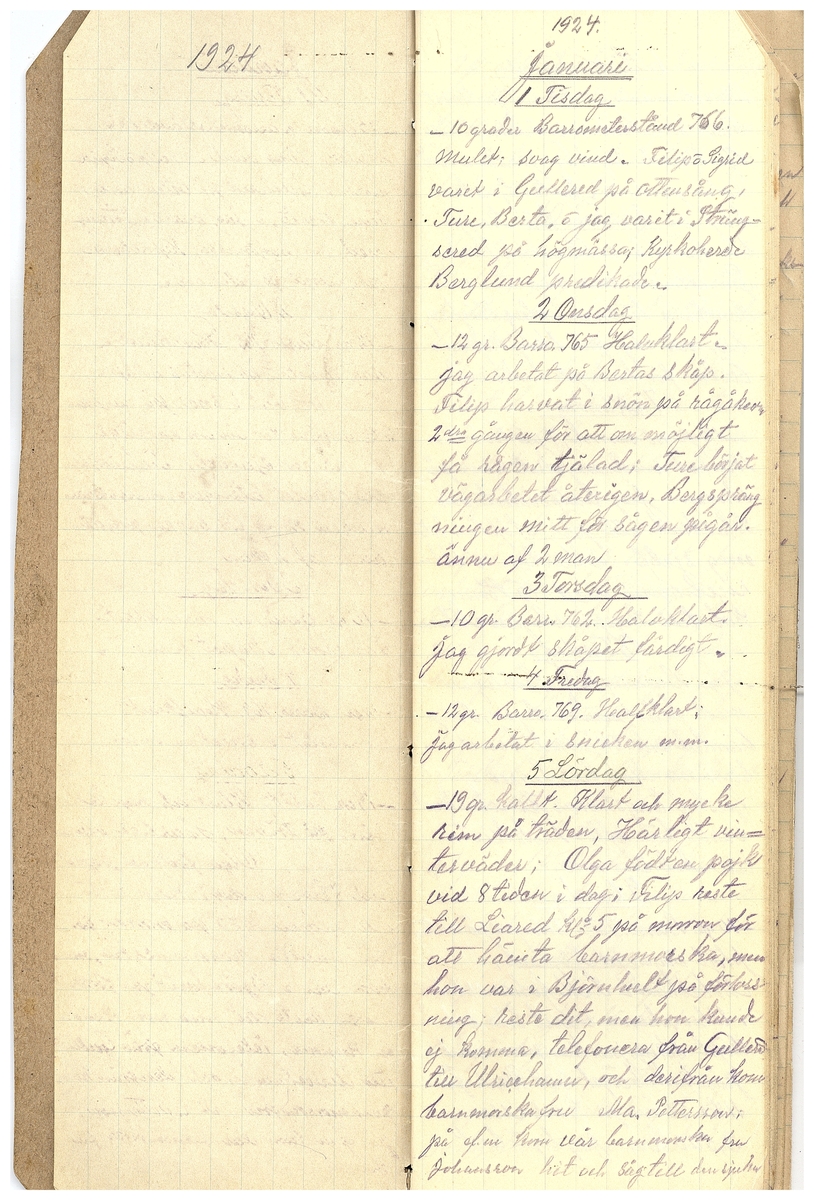 1924
1924.
Januari
1 Tisdag
–10 grader Barrometerstånd 766.
Mulet; svag vind. Filip o Sigrid
varet i Gullered på ottesång,
Ture, Berta, o jag varit i Strängs=
sered på högmässa; Kyrkoherde
Berglund predikade.
2 Onsdag
–12 gr. Barro. 765 Halvklart.
jag arbetat på Bertas skåp.
Filip harvat i snön på rågåkern
2dra gången för att om möjligt
få rågen tjälad; Ture börjat
vägarbetet återigen, Bergspräng
ningen mitt för sågen pågår.
ännu af 2 man
3 Torsdag
–10 gr. Barr. 762. Halvklart.
jag gjordt skåpet färdigt.
4 Fredag
–12 gr. Barro. 769. Halfklart;
jag arbetat i snicken m.m.
5 Lördag
–19 gr. kallt. Klart och mycke
rim på träden, Härligt vin=
terväder; Olga född en pojk
vid 8 tiden i dag; Filip reste
till Liared kl 5 på morron för
att hämta barnmorska, men
hon var i Björnhult på förloss
ning; reste dit, men hon kunde
ej komma, telefonera från Gullered
till Ulricehamn, och derifrån kom
barnmorska fru Ma. Pettersson;
på e.m kom vår barnmorska fru
Johansson hit och såg till den sjuka